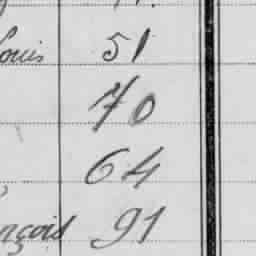 Louis 51
70
64
nçois 91